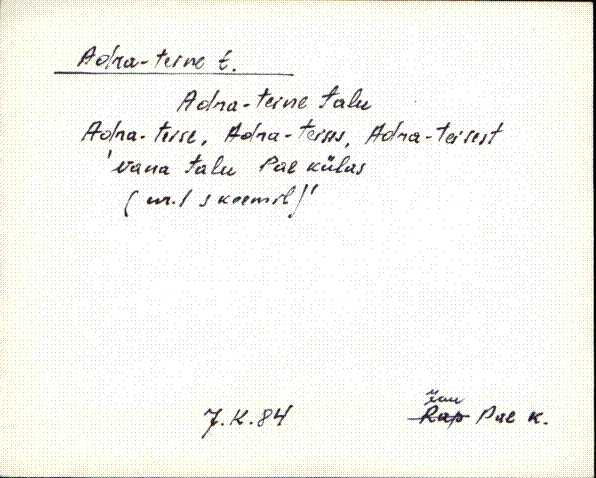 Adra-teine t.
Adra-teine talu
Adra-teise, Adra-teises, Adra-teisest
'vana talu Pae külas
(nr. 1 skeemil)'
J.K.84
Rap Pae k.